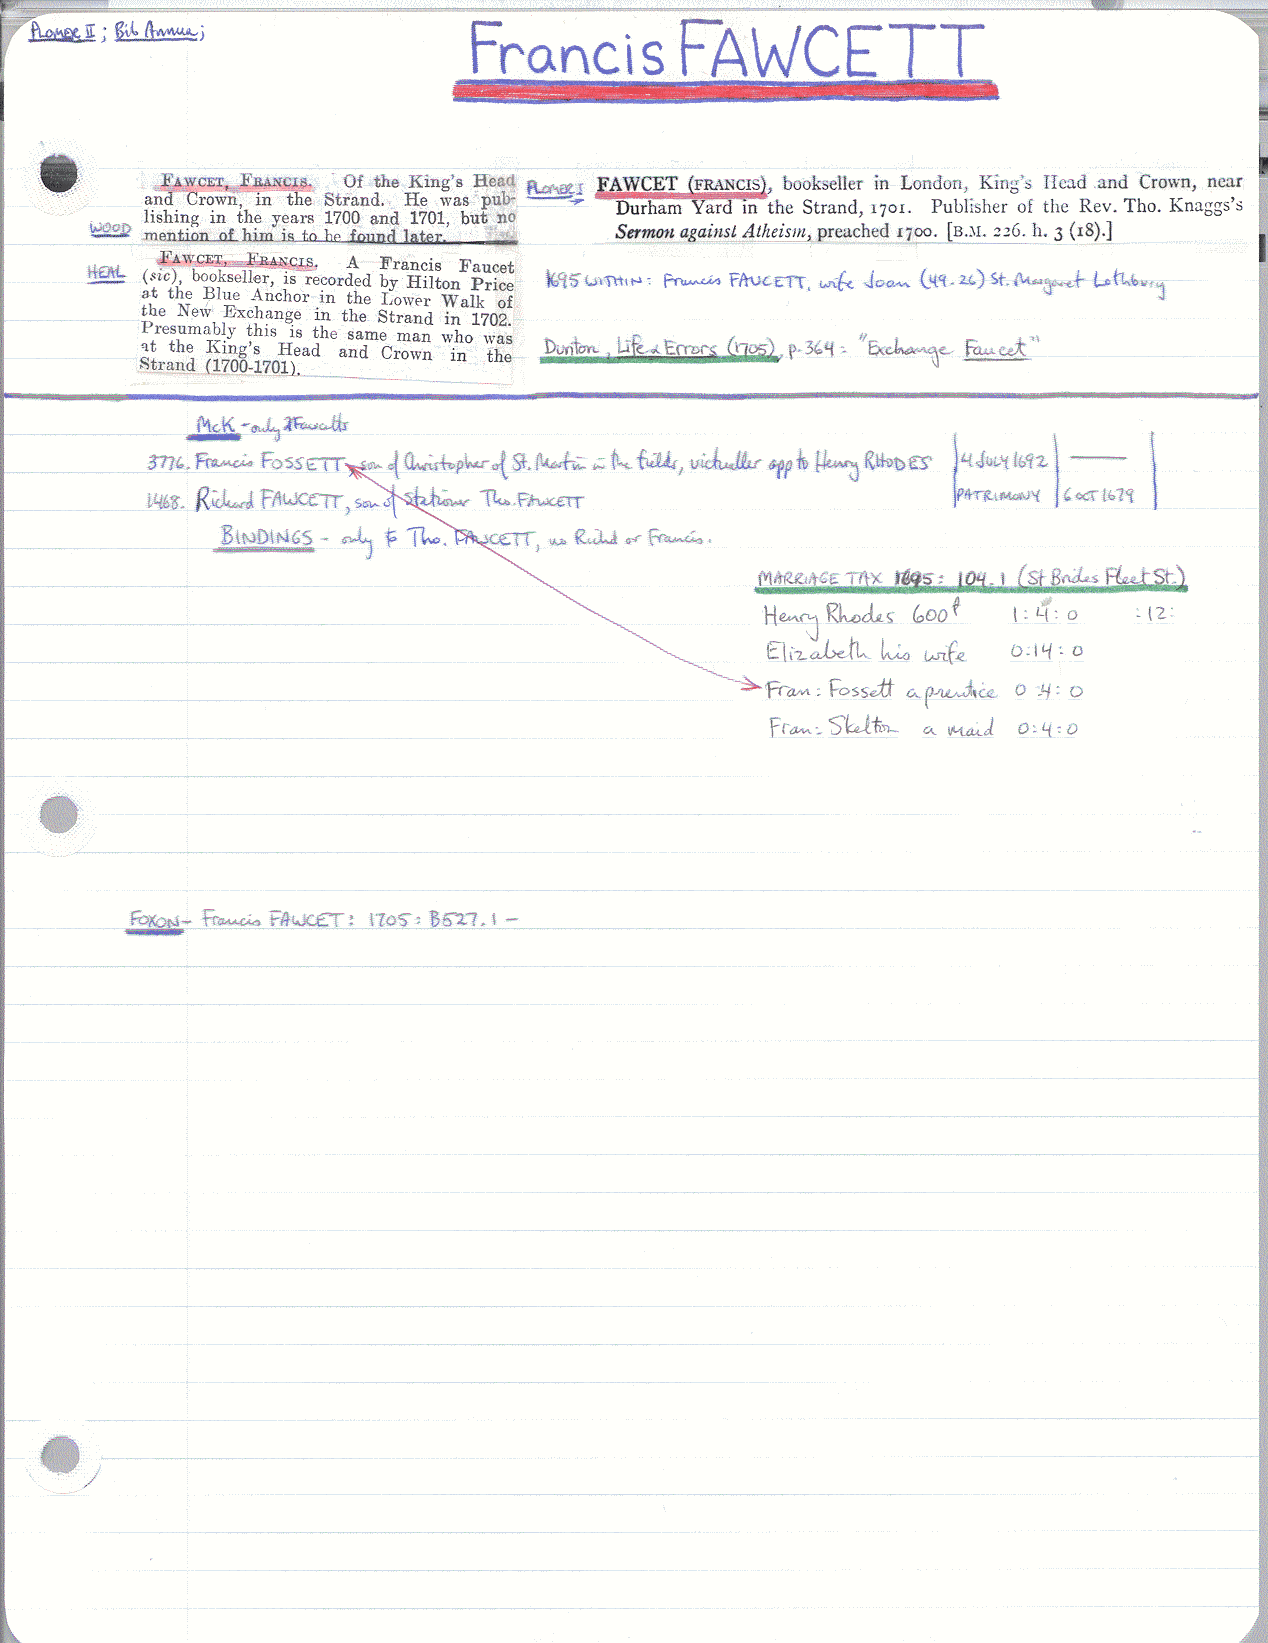 PLOMER II; Bib Annua;
Francis FAWCETT
FAWCET, FRANCIS. Of the King's Head
and Crown, in the Strand. He was pub-
lishing in the years 1700 and 1701, but no
WOOD mention of him is to be found later.
HEAL FAWCET, FRANCIS. A Francis Faucet
(sic), bookseller, is recorded by Hilton Price
at the Blue Anchor in the Lower Walk of
the New Exchange in the Strand in 1702.
Presumably this is the same man who was
at the King's Head and Crown in the
Strand (1700-1701).
PLOMER I FAWCET (FRANCIS), bookseller in London, King's Head and Crown, near
Durham Yard in the Strand, 1701. Publisher of the Rev. Tho. Knaggs's
Sermon against Atheism, preached 1700. [B.M. 226. h. 3 (18).]
1695 WITHIN: Francis FAUCETT, wife Joan (49.26) St. Margaret Lothbury
Dunton, Life & Errors (1705), p. 364: "Exchange Faucet"
McK - only 2 Fawcetts
3776. Francis FOSSETT, son of Christopher of St. Martin in the fields, victualler app to Henry RHODES | 4 JULY 1692 | — |
1468. Richard FAWCETT, son of Stationer Tho. FAWCETT | PATRIMONY | 6 OCT 1679 |
BINDINGS - only to Tho. FAWCETT, no Richd or Francis.
MARRIAGE TAX 1695: 104.1 (St Brides Fleet St.)
Henry Rhodes 600 1:4:0 :12:
Elizabeth his wife 0:14:0
Fran: Fossett aprentice 0:4:0
Fran: Skelton a maid 0:4:0
FOXON - Francis FAWCET: 1705: B527.1 -